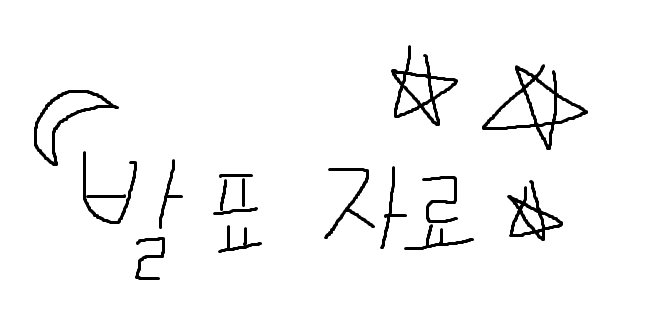 발표 자료